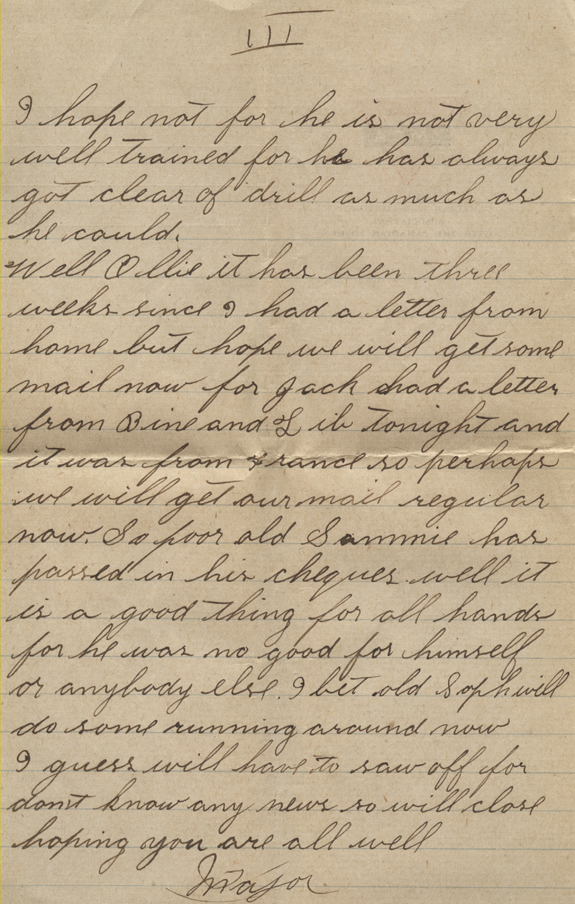 III
I hope not for he is not very
well trained for he has always
got clear of drill as much as
he could.
Well Ollie it has been three
weeks since I had a letter from
home but hope we will get some
mail now for Jack had a letter
from Bine and Lib tonight and
it was from France so perhaps
we will get our mail regular
now. So poor old Sammie has
passed in his cheques well it
is a good thing for all hands
for he was no good for himself
or anybody else. I bet old Soph will
do some running around now
I guess will have to saw off for
dont know any news so will close
hoping you are all well
Major